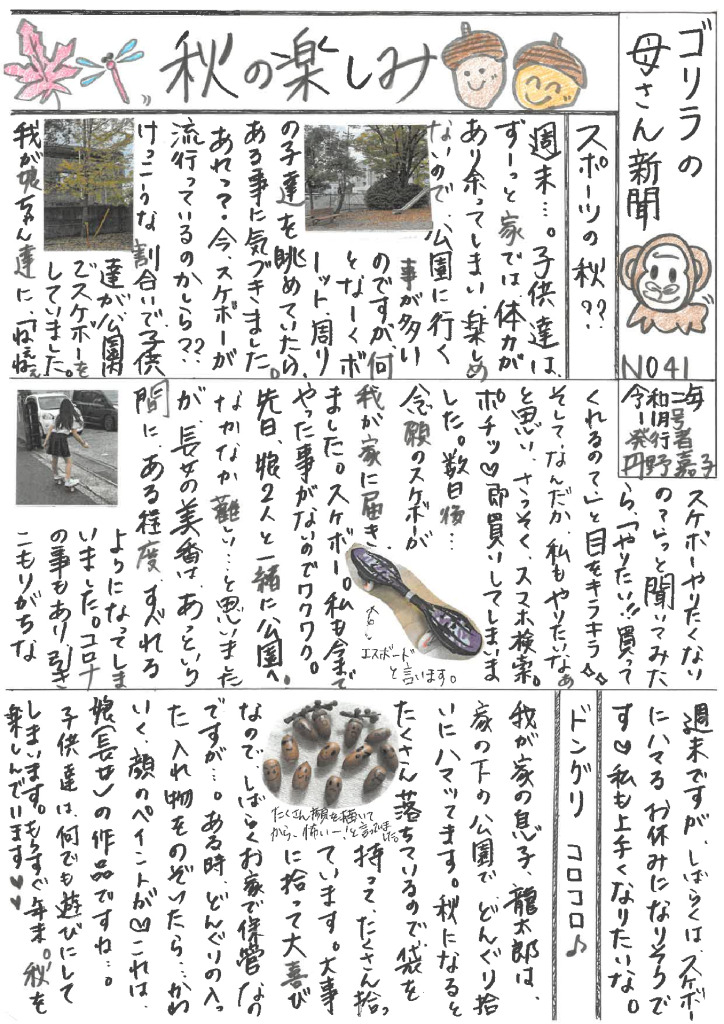 秋の楽しみ
ゴリラの
母さん新聞
NO41
毎
令和二
11月号
発行者
丹野嘉子
スポーツの秋??
週末…。子供達は、
ずーっと家では体力が
あり余ってしまい、楽しめ
ないので、公園に行く
事が多い
のですが、何
となーくボ
ーット、周り
の子達を眺めていたら、
ある事に気づきました。
あれっ?。今、スケボーが
流行っているのかしら??
けっこうな割合いで子供
達が公園
でスケボーを
していました。
我が娘ちゃん達に、「ねぇねぇ
スケボーやりたくない
の?」っと聞いてみた
ら、「やりたい!!買って
くれるのぉ」と目をキラキラ
そして、なんだか、私もやりたいなぁ
と思い、さっそく、スマホ検索。
ポチッ♡即買いしてしまいま
した。数日後…
念願のスケボーが
我が家に届き
ました。スケボー。私も今まで
やった事がないのでワクワク。
先日、娘2人と一緒に公園へ。
なかなか難しい…と思いました
が、長女の美香は、あっという
間に、ある程度、すべれる
ようになってしま
いました。コロナ
の事もあり、引き
こもりがちな
エスボード
と言います。
週末ですが、しばらくは、スケボー
にハマるお休みになりそうで
す♡私も上手くなりたいな。
ドングリ コロコロ♪
我が家の息子、龍太郎は、
家の下の公園で、どんぐり拾
いにハマッてます。秋になると
たくさん落ちているので、袋を
持って、たくさん拾っ
ています。大事
に拾って大喜び
なので、しばらくお家で保管なの
ですが…。ある時、どんぐりの入っ
た入れ物をのぞいたら…かわ
いく、顔のペイントが♡これは、
娘(長女)の作品ですね…。
子供達は、何でも遊びにして
しまいます。もうすぐ年末。秋を
楽しんでいます♡♡
たくさん顔を描いて
から、怖いー!と言ってました。